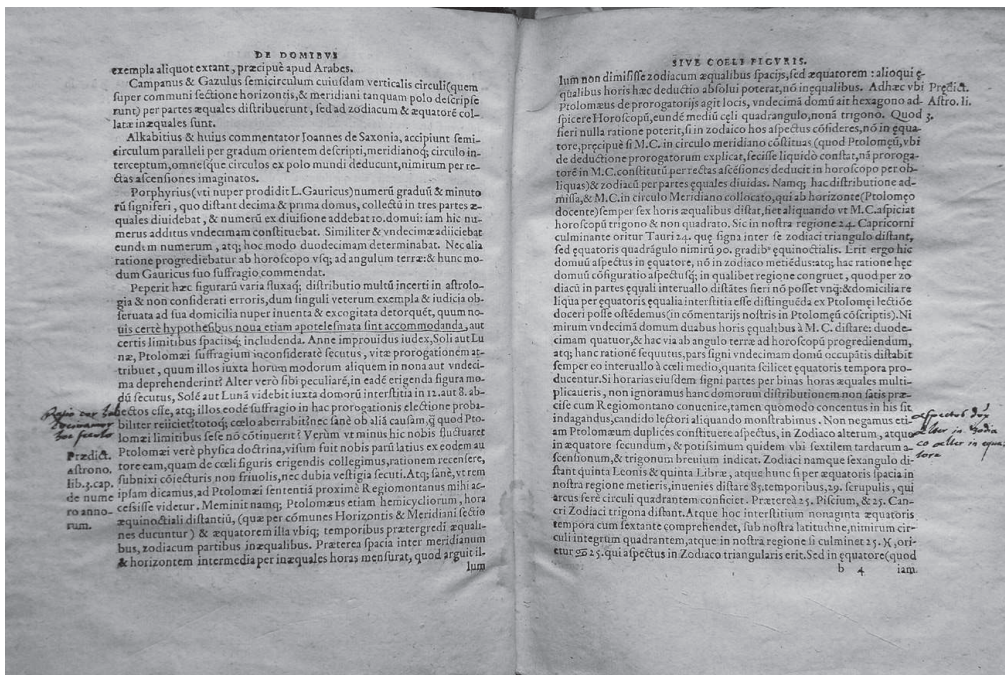 DE DOMIBVS
exempla aliquot extant, præcipuè apud Arabes.
Campanus & Gazulus semicirculum cuiusdam verticalis circuli (quem
super communi sectione horizontis, & meridiani tanquam polo descripse
runt) per partes æquales distribuerunt, sed ad zodiacum & æquatorē col-
latæ inæquales sunt.
Alkabitius & huius commentator Ioannes de Saxonia, accipiunt semi-
circulum paralleli per gradum orientem descripti, meridianoq́; circulo in-
terceptum, omnesque circulos ex polo mundi deducunt, nimirum per re-
ctas ascensiones imaginatos.
Porphyrius (vti nuper prodidit L. Gauricus) numerū graduū & minuto
rū signiferi, quo distant decima & prima domus, collectū in tres partes æ-
quales diuidebat, & numerū ex diuisione addebat 10. domui: iam hic nu-
merus additus vndecimam constituebat. Similiter & vndecimæ adiiciebat
eundem numerum, atq; hoc modo duodecimam determinabat. Nec alia
ratione progrediebatur ab horoscopo vsq; ad angulum terræ: & hunc mo-
dum Gauricus suo suffragio commendat.
Peperit hæc figurarū varia fluxaq́; distributio multū incerti in astrolo-
gia & non considerati erroris, dum singuli veterum exempla & iudicia ob-
seruata ad sua domicilia nuper inuenta & excogitata detorquēt, quum no-
uis certè hypothesibus noua etiam apotelesmata sint accommodanda, aut
certis limitibus spacijsq́; includenda. Anne improuidus iudex, Soli aut Lu
næ, Ptolomæi suffragium inconsideratè secutus, vitæ prorogationem at-
tribuet, quum illos iuxta horum modorum aliquem in nona aut vndeci-
ma deprehenderint? Alter verò sibi peculiarē, in eadē erigenda figura mo-
dū secutus, Solē aut Lunā videbit iuxta domorū interstitia in 12. aut 8. ab-
iectos esse, atq; illos eodē suffragio in hac prorogationis electione proba-
biliter reiiciet: totoq́; cœlo aberrabit: nec sanè ob aliā causam, q̄ quod Pto-
lomæi limitibus sese nō cōtinuerit? Verùm vt minus hic nobis fluctuaret
Ptolomæi verè physica doctrina, visum fuit nobis parū latius ex eodem au
tore eam, quam de cœli figuris erigendis collegimus, rationem recensere,
subnixi cōiecturis non friuolis, nec dubia vestigia secuti. Atq; sanè, vt rem
ipsam dicamus, ad Ptolomæi sententiā proximè Regiomontanus mihi ac-
cessisse videtur. Meminit namq; Ptolomæus etiam hemicycliorum, hora
æquinoctiali distantiū, (quæ per cōmunes Horizontis & Meridiani sectio
nes ducuntur) & æquatorem illa vbiq; temporibus prætergredi æquali-
bus, zodiacum partibus inæqualibus. Præterea spacia inter meridianum
& horizontem intermedia per inæquales horas mensurat, quod arguit il-
lum
Prædict.
astrono.
lib. 3. cap.
de nume
ro anno-
rum.
SIVE COELI FIGVRIS.
lum non dimisisse zodiacum æqualibus spacijs, sed æquatorem: alioqui ę-
qualibus horis hæc deductio absolui poterat, nō inęqualibus. Adhæc vbi
Ptolomæus de prorogatorijs agit locis, vndecimā domū ait hexagono ad-
spicere Horoscopū, eundē mediū cęli quadrangulo, nonā trigono. Quod
fieri nulla ratione poterit, si in zodiaco hos aspectus cōsideres, nō in ęqua-
tore, pręcipuè si M.C. in circulo meridiano cōstituas (quod Ptolomęū, vbi
de deductione prorogatorum explicat, fecisse liquidò constat, nā proroga-
torē in M.C. constitutū per rectas ascēsiones deducit in horoscopo per ob-
liquas) & zodiacū per partes ęquales diuidas. Namq; hac distributione ad-
missa, & M.C. in circulo Meridiano collocato, qui ab horizonte (Ptolomęo
docente) semper sex horis æqualibus distat, fiet aliquando vt M.C. aspiciat
horoscopū trigono & non quadrato. Sic in nostra regione 24. Capricorni
culminante oritur Tauri 24. quę signa inter se zodiaci triangulo distant,
sed ęquatoris quadrāgulo nimirū 90. gradibꝰ ęquinoctialis. Erit ergo hic
domuū aspectus in ęquatore, nō in zodiaco metiēdus: atq; hac ratione hęc
domuū cōfiguratio aspectusq́; in qualibet regione congruet, quod per zo-
diacū in partes ęquali interuallo distātes fieri nō posset vnq̄: & domicilia re
liqua per ęquatoris ęqualia interstitia esse distinguēda ex Ptolomęi lectiōe
doceri posse ostēdemus (in cōmentarijs nostris in Ptolomęū cōscriptis). Ni
mirum vndecimā domum duabus horis ęqualibus à M.C. distare: duode-
cimam quatuor, & hac via ab angulo terræ ad horoscopū progrediendum,
atq; hanc rationē sequutus, pars signi vndecimam domū occupātis distabit
semper eo interuallo à cœli medio, quanta scilicet ęquatoris tempora pro-
ducentur. Si horarias eiusdem signi partes per binas horas æquales multi-
plicaueris, non ignoramus hanc domorum distributionem non satis præ-
cise cum Regiomontano conuenire, tamen quomodo concentus in his sit
indagandus, candido lectori aliquando monstrabimus. Non negamus eti-
am Ptolomæum duplices constituere aspectus, in Zodiaco alterum, atque
in æquatore secundum, & potissimum quidem vbi sextilem tardarum a-
scensionum, & trigonum breuium indicat. Zodiaci namque sexangulo di-
stant quinta Leonis & quinta Libræ, atque hunc si per æquatoris spacia in
nostra regione metieris, inuenies distare 85. temporibus, 29. scrupulis, qui
arcus ferè circuli quadrantem conficiet. Præterea 25. Piscium, & 25. Can-
cri Zodiaci trigona distant. Atque hoc interstitium nonaginta æquatoris
tempora cum sextante comprehendet, sub nostra latitudine, nimirum cir-
culi integrum quadrantem, atque in nostra regione si culminet 25. ♓, ori-
etur ♋ 25. qui aspectus in Zodiaco triangularis erit. Sed in ęquatore (quod
b 4 iam
Prędict.
Astro. li.
3.
aspectus
alter in Zodia
co alter in equa
tore